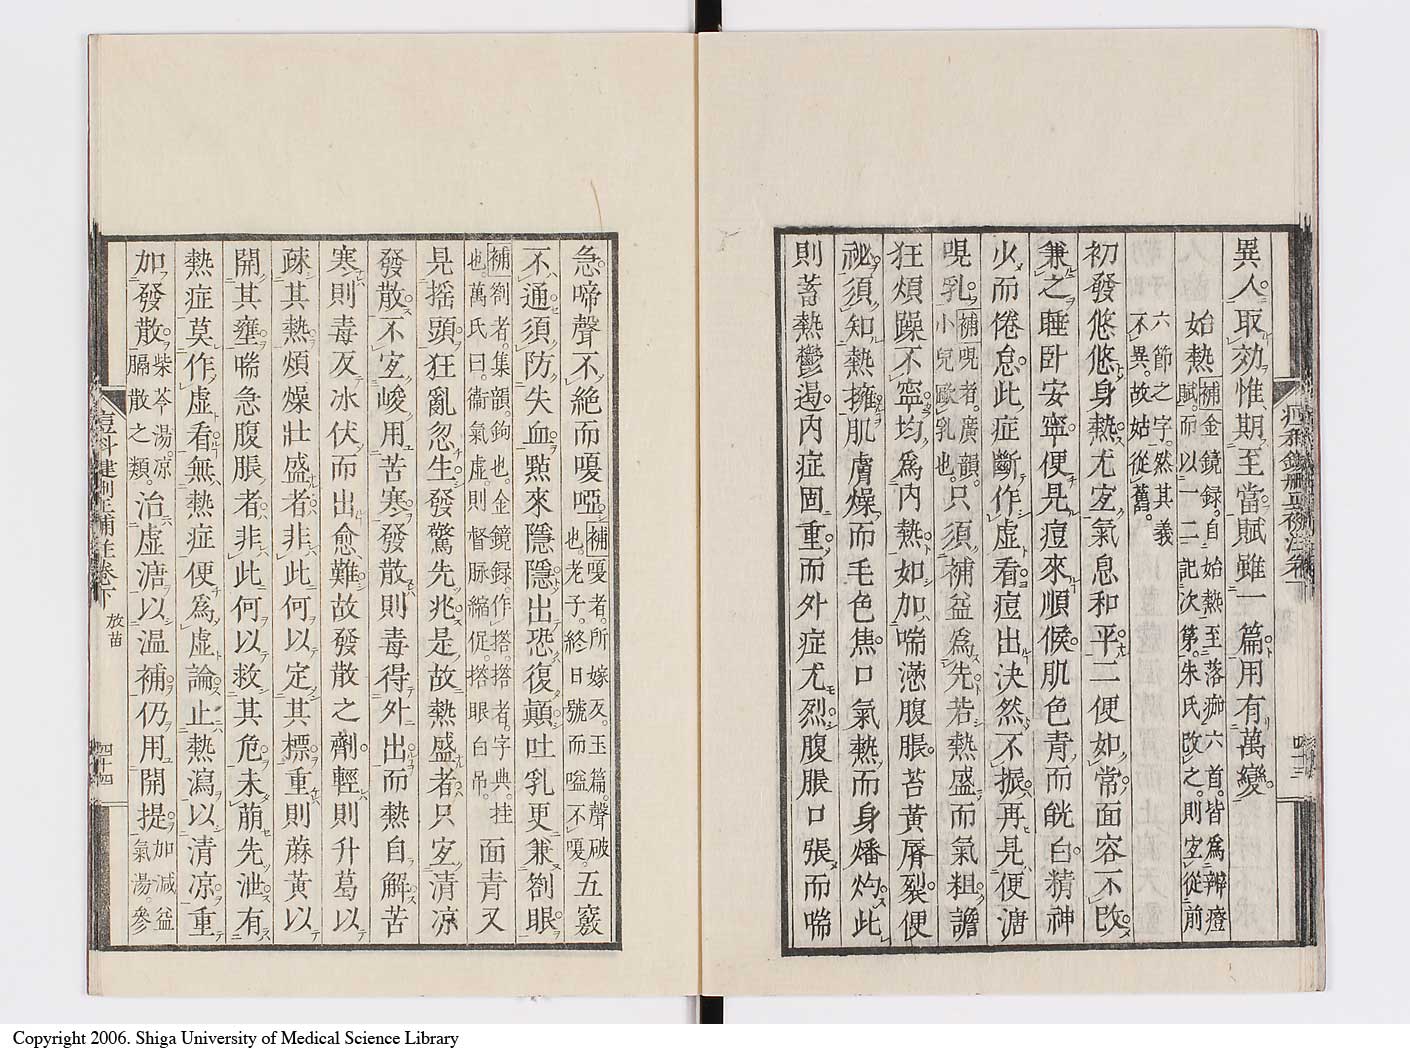 異人取効惟期至當賦雖一篇用有萬變
始熱補金鏡録自始熱至落痂六首皆爲辨證
賦而以一二記次第朱氏改之則宜從前
六節之字然其義
不異故姑從舊
初發悠悠身熱尤宜氣息和平二便如常面容不改
兼之睡臥安寧便見痘來順候肌色青而㿠白精神
少而倦怠此症斷作虚看痘出決然不振再見便溏
哯乳補哯者廣韻
小兒歐乳也只須補益爲先若熱盛而氣粗譫
狂煩躁不寧均爲内熱如加喘懑腹脹苔黄脣裂便
祕須知熱擁肌膚燥而毛色焦口氣熱而身燔灼此
則蓄熱鬱遏内症固重而外症尤烈腹脹口張而喘
急啼聲不絶而嗄啞補嗄者所嫁反玉篇聲破
也老子終日號而嗌不嗄五竅
不通須防失血㸃來隱隱出恐復顛吐乳更兼劄眼
補劄者集韻鉤也金鏡録作搭搭者字典挂
也萬氏曰衞氣虚則督脉縮促搭眼白吊面青又
見摇頭狂亂忽生發驚先兆是故熱盛者只宜清凉
發散不宜峻用苦寒發散則毒得外出而熱自解苦
寒則毒反冰伏而出愈難故發散之劑輕則升葛以
疎其熱煩燥壯盛者非此何以定其標重則蔴黄以
開其壅喘急腹脹者非此何以救其危未萠先泄有
熱症莫作虚看無熱症便爲虚論止熱瀉以清凉重
加發散柴苓湯凉
膈散之類治虚溏以温補仍用開提加減益
氣湯參
痘科鍵刪正補註卷下
放苗
四十四
Copyright 2006. Shiga University of Medical Science Library